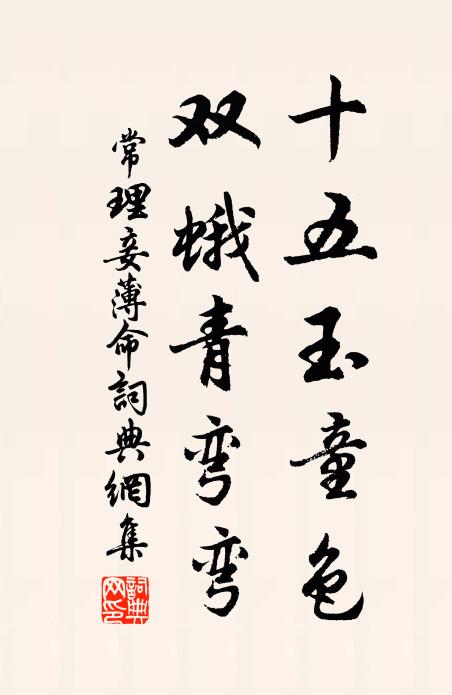 十五玉童色
双蛾青弯弯
常理妾薄命詞典網集
詞典
网印